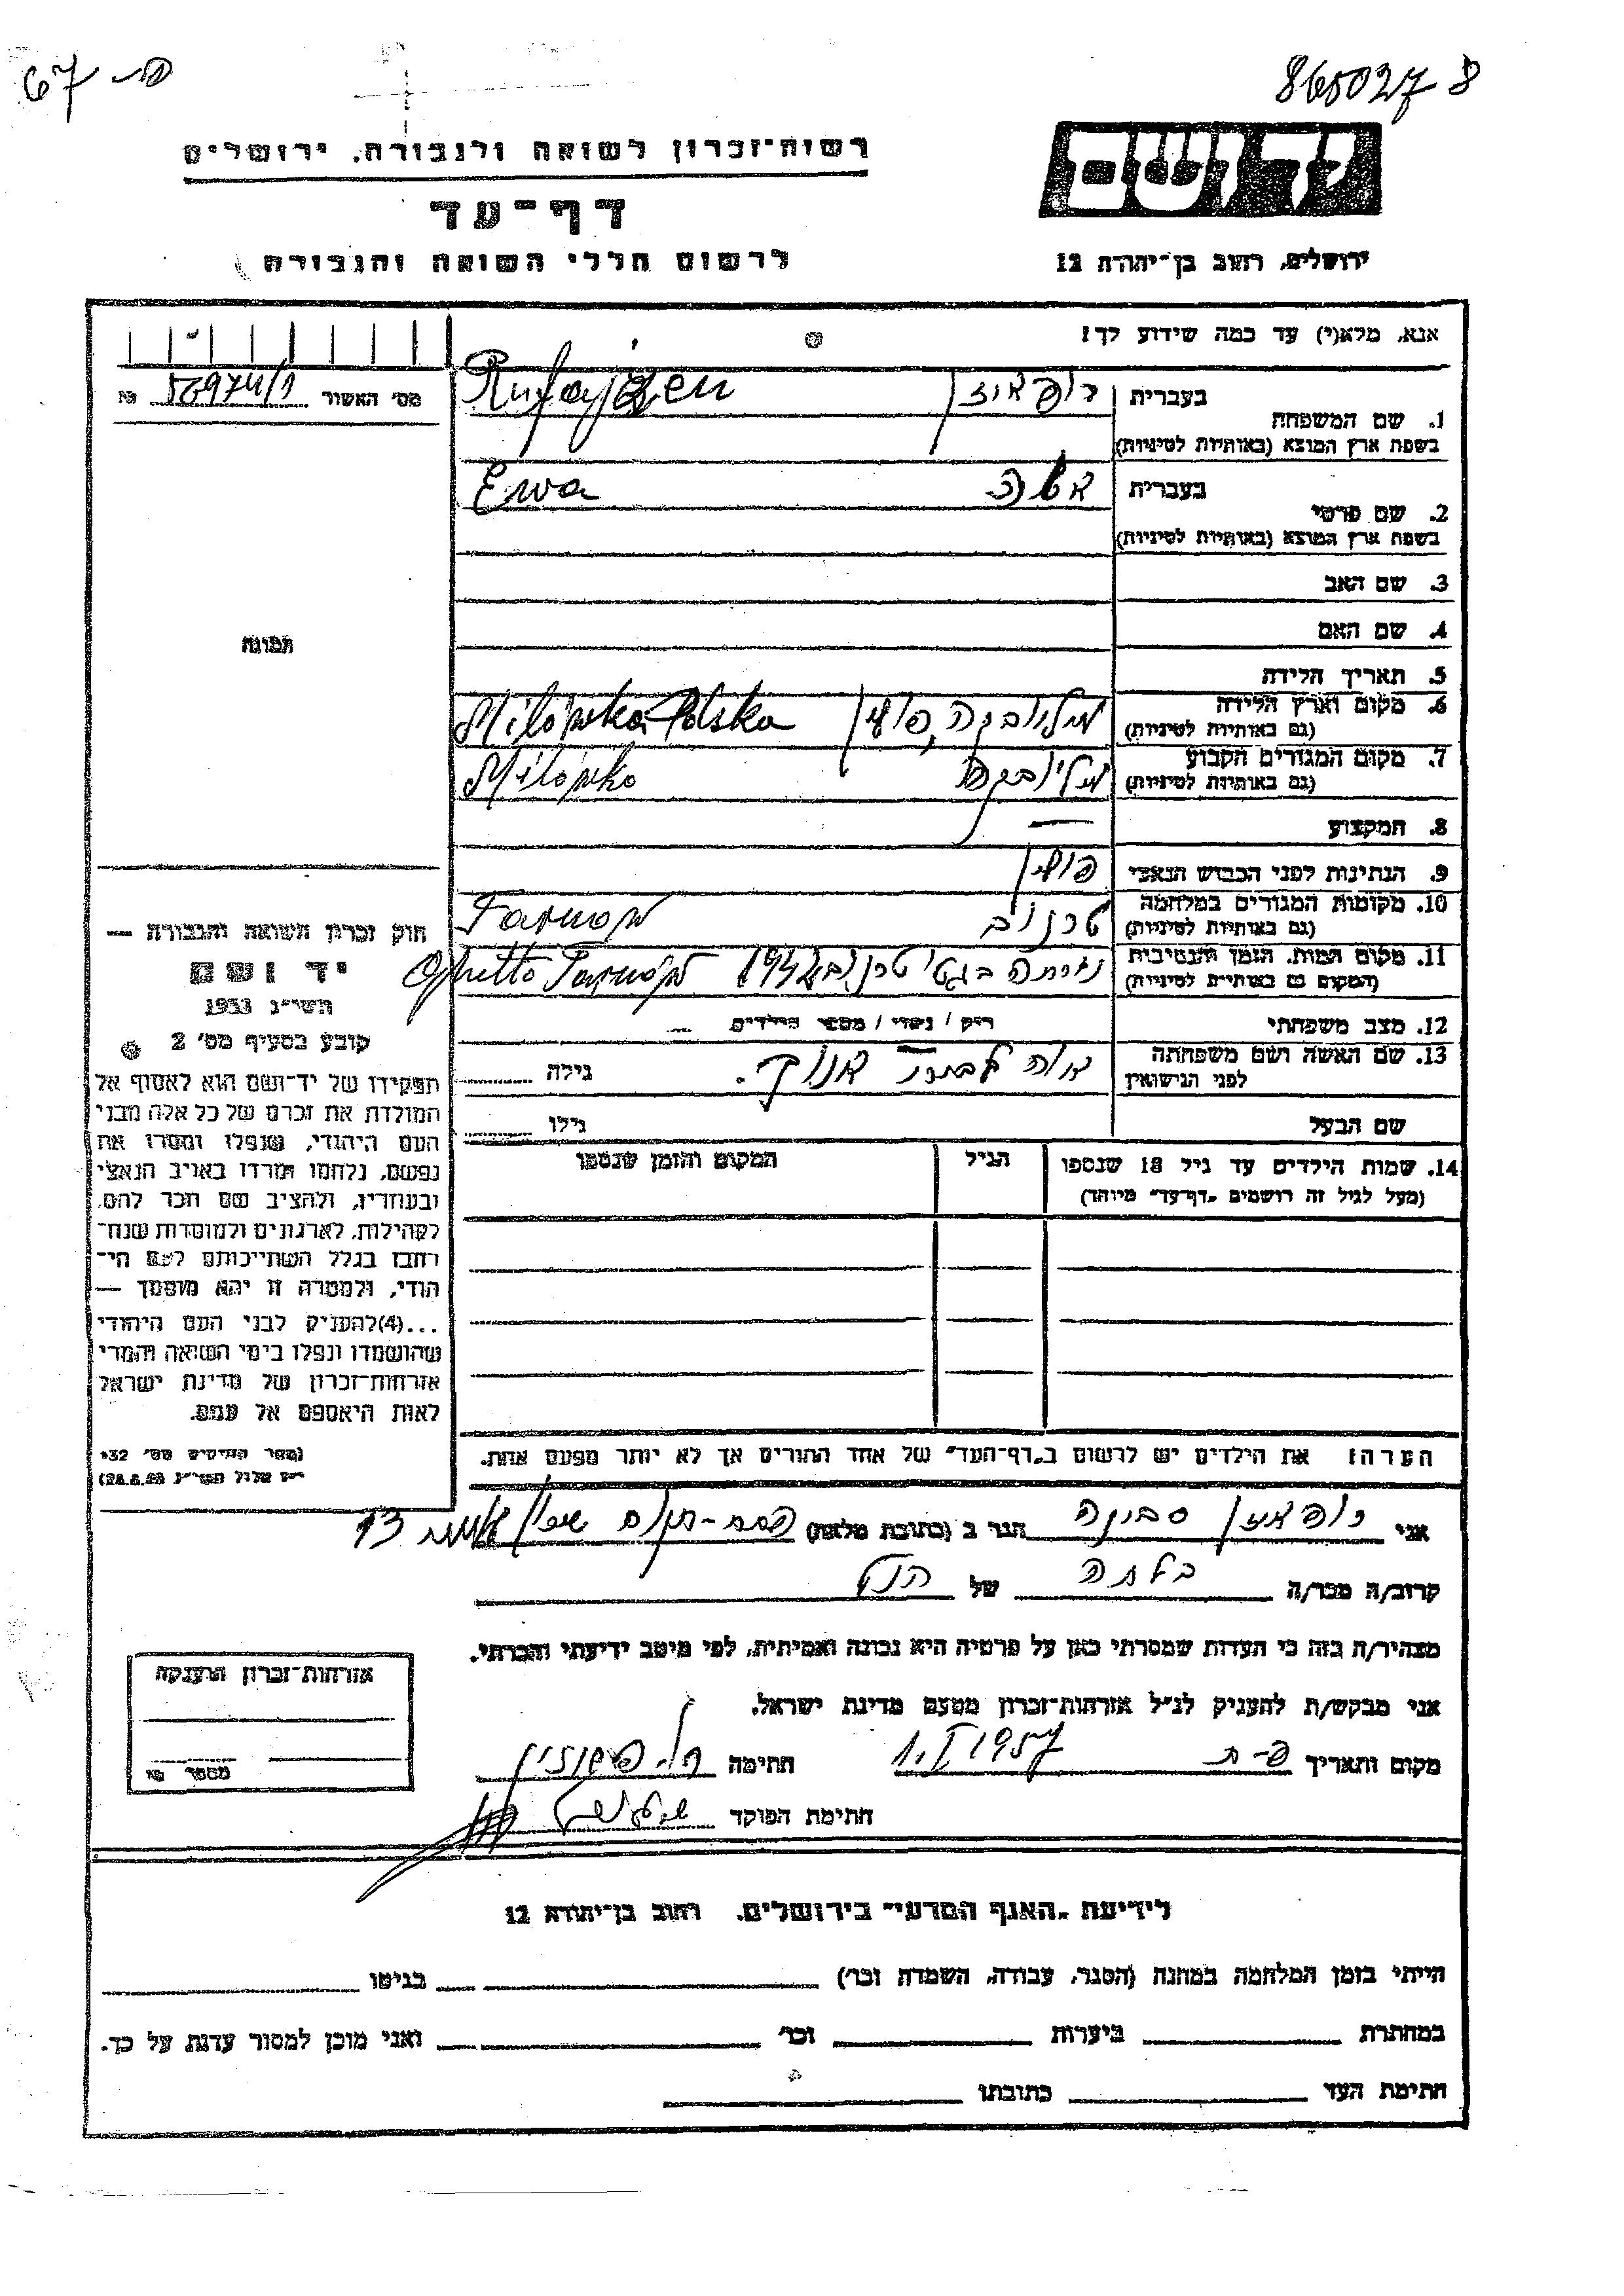 67 - פ
8650278
רשות-זכרון לשואה ולגבורה, ירושלים
ידושם
דף-עד
לרשום חללי השואה והגבורה
ירושלים, רחוב בן-יהודה 12
אנא, מלא(י) עד כמה שידוע לך!
מס' האשור
№
1. שם המשפחה
בעברית
בשפת ארץ המוצא (באותיות לטיניות)
Rufajzen
2. שם פרטי
בעברית
בשפת ארץ המוצא (באותיות לטיניות)
Ewa
3. שם האב
4. שם האם
תמונה
5. תאריך הלידה
6. מקום וארץ הלידה
(גם באותיות לטיניות)
מילובקה, פולין
Milówka Polska
7. מקום המגורים הקבוע
(גם באותיות לטיניות)
מילובקה
Milówka
8. המקצוע
—
9. הנתינות לפני הכבוש הנאצי
פולין
10. מקומות המגורים במלחמה
(גם באותיות לטיניות)
טרנוב
Tarnow
11. מקום המות, הזמן והנסיבות
(המקום גם באותיות לטיניות)
בגטו טרנוב 1942
Ghetto Tarnów
12. מצב משפחתי
רוק / נשוי / מספר הילדים
13. שם האשה ושם משפחתה
לפני הנישואין
גילה
שם הבעל
גילו
14. שמות הילדים עד גיל 18 שנספו
(מעל לגיל זה רושמים „דף-עד" מיוחד)
הגיל
המקום והזמן שנספו
הערה: את הילדים יש לרשום ב„דף-העד" של אחד ההורים אך לא יותר מפעם אחת.
חוק זכרון השואה והגבורה —
יד ושם
תשי"ג 1953
קובע בסעיף מס' 2
תפקידו של יד-ושם הוא לאסוף אל
המולדת את זכרם של כל אלה מבני
העם היהודי, שנפלו ומסרו את
נפשם, נלחמו ומרדו באויב הנאצי
ובעוזריו, ולהציב שם וזכר להם,
לקהילות, לארגונים ולמוסדות שנח־
רבו בגלל השתייכותם לעם הי־
הודי, ולמטרה זו יהא מוסמך —
...(4) להעניק לבני העם היהודי
שהושמדו ונפלו בימי השואה והמרי
אזרחות-זכרון של מדינת ישראל
לאות היאספם אל עמם.
(ספר החוקים מס' 132
י"ז אלול תשי"ג 28.8.53)
אני
סבינה
הגר ב (כתובת מלאה)
קרוב/ה מכר/ה
של
מצהיר/ה בזה כי העדות שמסרתי כאן על פרטיה היא נכונה ואמיתית, לפי מיטב ידיעתי והכרתי.
אני מבקש/ת להעניק לנ"ל אזרחות-זכרון מטעם מדינת ישראל.
מקום ותאריך פ-ת 1.I 1957
חתימה
חתימת הפוקד
אזרחות-זכרון הוענקה
מספר
לידיעת „האגף המדעי" בירושלים, רחוב בן-יהודה 12
הייתי בזמן המלחמה במחנה (הסגר, עבודה, השמדה וכו')
בגיטו
במחתרת
ביערות
וכו'
ואני מוכן למסור עדות על כך.
חתימת העד
כתובתו